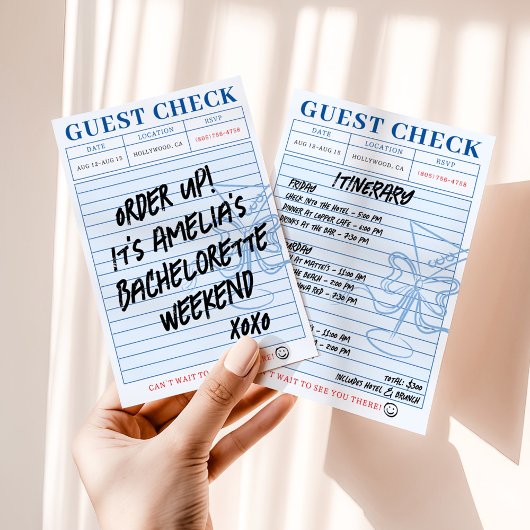 GUEST CHECK
DATE LOCATION RSVP
AUG 12-AUG 15 HOLLYWOOD, CA (805)756-4758
ORDER UP!
IT'S AMELIA'S
BACHELORETTE
WEEKEND
XOXO
CAN'T WAIT TO HERE!
GUEST CHECK
DATE LOCATION RSVP
AUG 12-AUG 15 HOLLYWOOD, CA (805)756-4758
ITINERARY
FRIDAY
CHECK INTO THE HOTEL - 5:00 PM
DINNER AT COPPER CAFE - 6:00 PM
DRINKS AT THE BAR - 7:30 PM
AT MATTEI'S - 11:00 AM
THE BEACH - 2:00 PM
RED - 7:30 PM
- 11:00 AM
- 2:00 PM
TOTAL: $300
INCLUDES HOTEL & BRUNCH
WAIT TO SEE YOU THERE!